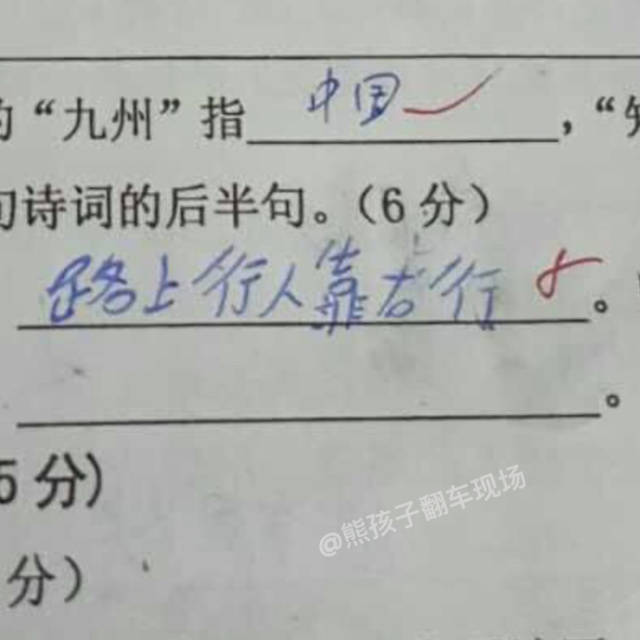 的“九州”指 中国 ,“
句诗词的后半句。(6 分)
路上行人靠右行 。
。
5 分)
分)
@熊孩子翻车现场